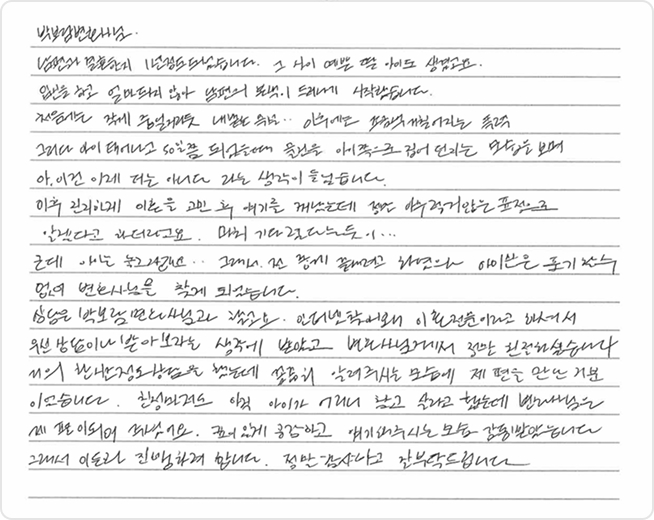 박보람변호사님.
남편과 결혼한지 1년정도 되었습니다. 그 사이 예쁜 딸 아이도 생겼고요.
임신을 하고 얼마되지 않아 남편의 본색이 드러나기 시작했습니다.
처음에는 작게 뱉은 속마음.. 이후에는
그러다 아이 태어나고 50일쯤 되었을때 물건을 아이쪽으로 집어 던지는 모습을 보며
아, 이건 이제 더는 아니다 라는 생각이 들었습니다.
이후 진지하게 이혼을 고민 후 얘기를 꺼냈는데 정말 아무렇지않은 표정으로
알겠다고 하더라고요. 마치 기다렸다는듯이...
근데 애는 .. 그래서. 좋게 끝내려고 하였으나 아이만은 포기할수
없어 변호사님을 찾게 되었습니다.
상담은 박보람 변호사님과 했고요. 인터넷 찾아보니 이혼전문이라고 하셔서
우선 상담이나 받아보자는 생각에 받았고 변호사님께서 정말 친절하셨습니다
거의 한시간정도상담을 했는데 꼼꼼히 알려주시는 모습에 제 편을 만난 기분
이었습니다. 친정마저도 아직 아이가 어리니 참고 살라고 했는데 변호사님은
제 편이되어 주셨어요. 공감하고 얘기해주시는 모습 감동받았습니다
그래서 이대로 진행하려 합니다. 정말 감사하고 잘부탁드립니다